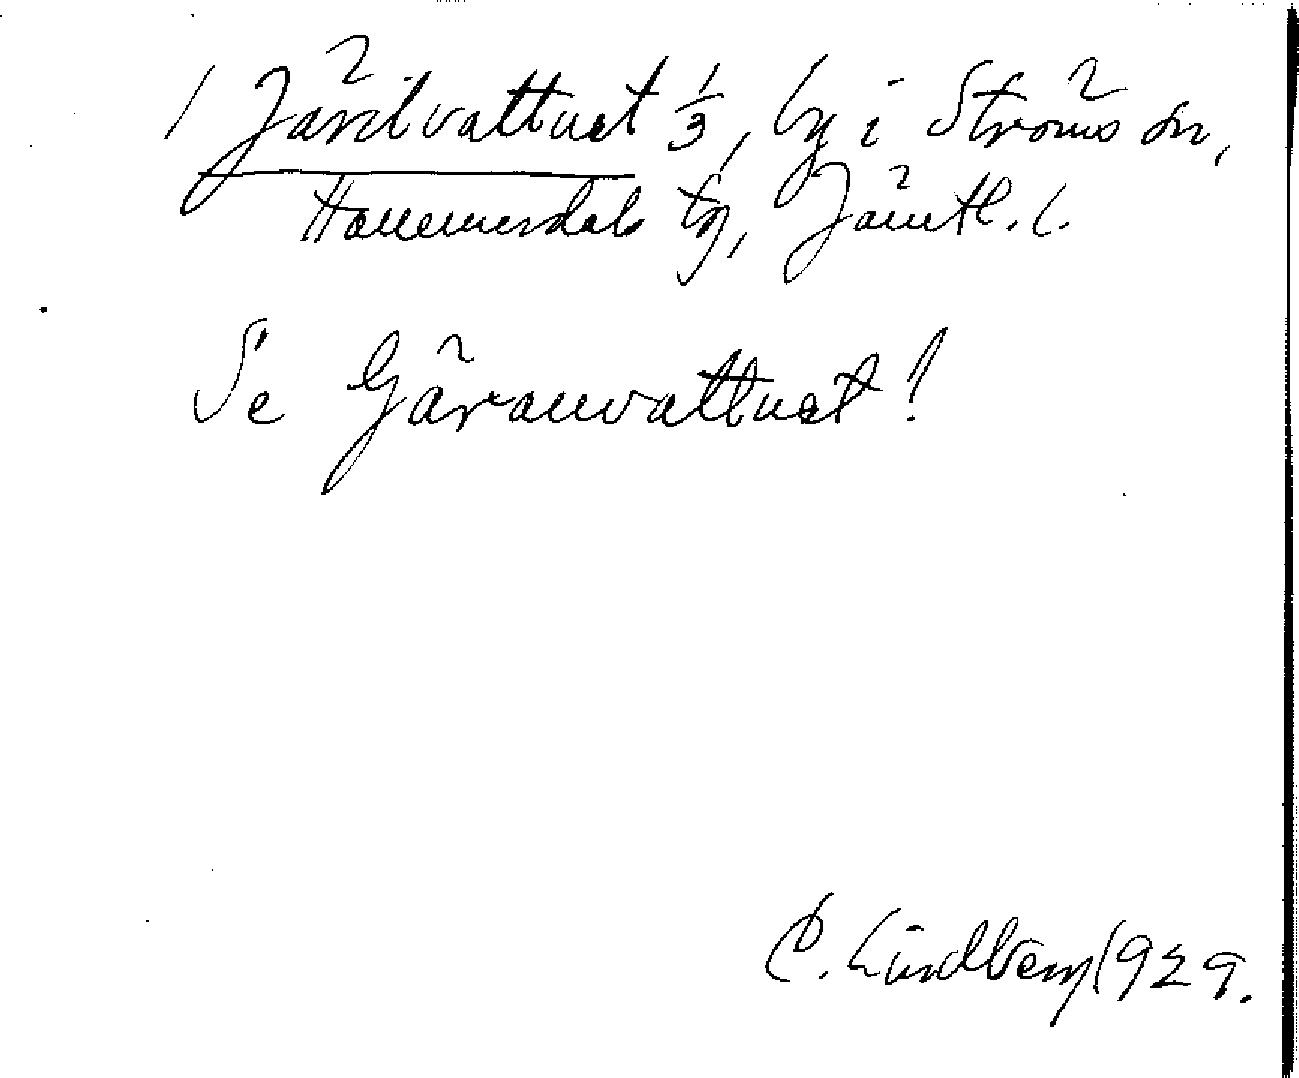 / Järilvattnet 1/3, by i Ströms sn,
Hammerdals tg, Jämtl. l.
Se Gäranvattnet!
C. Lindberg 1929.